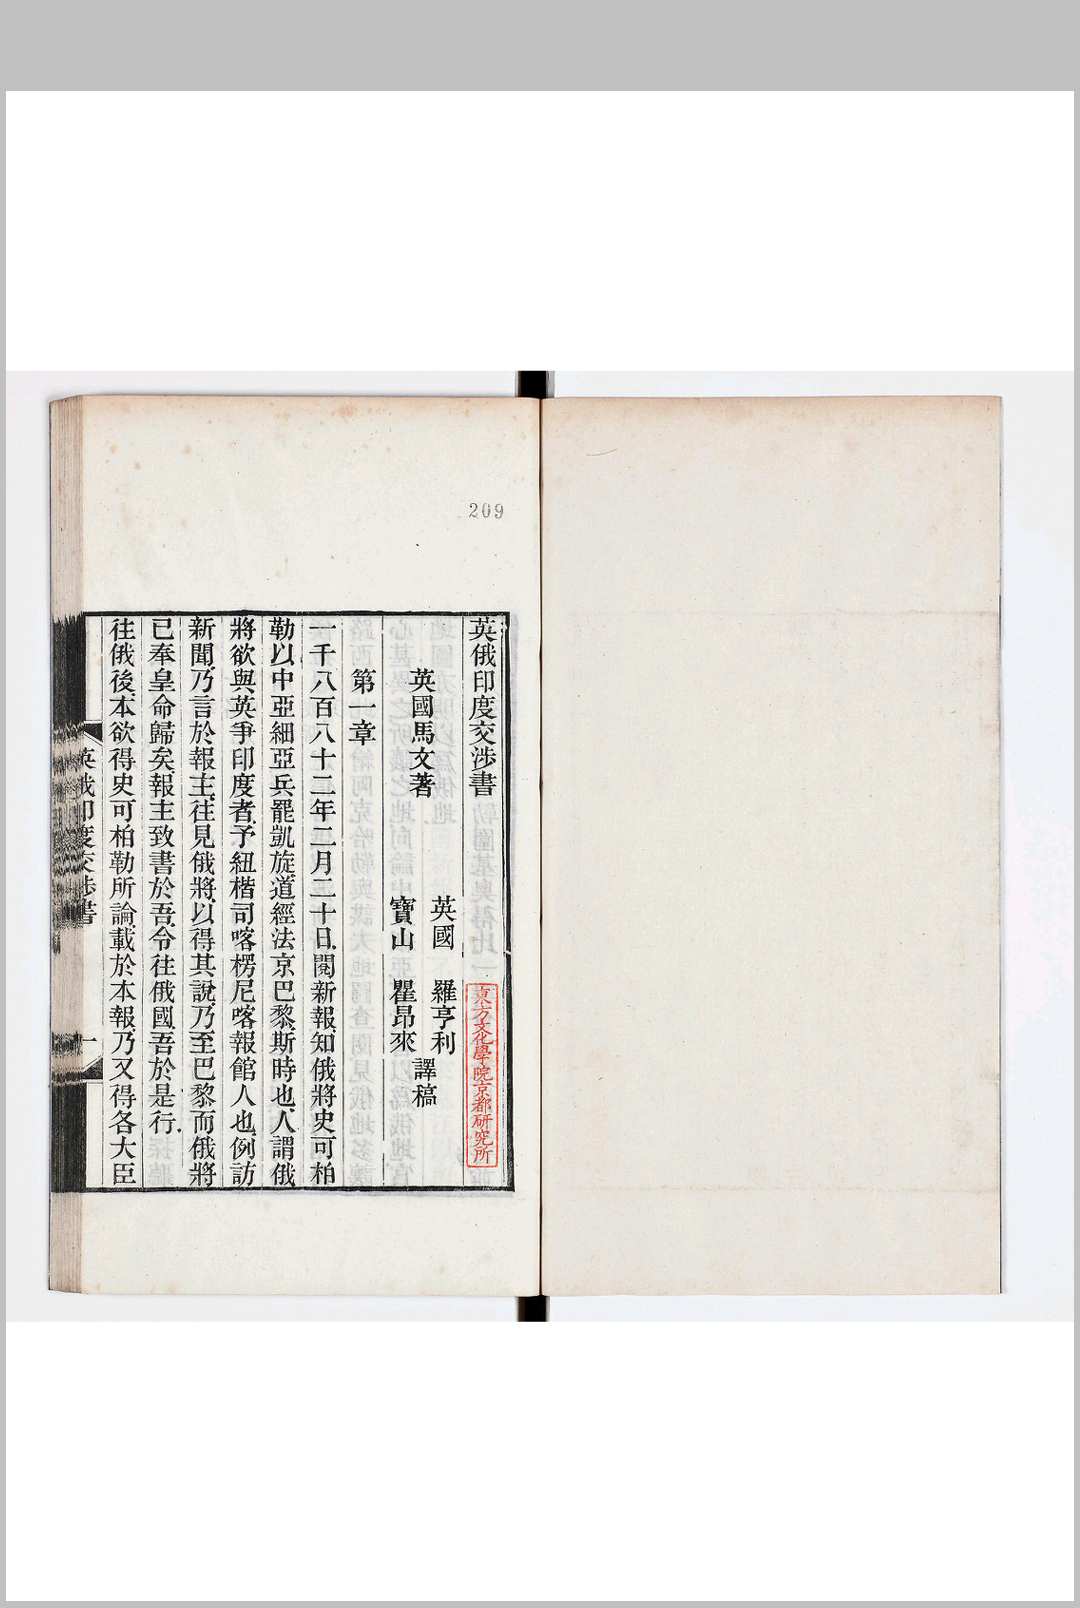 209
英俄印度交涉書
英國馬文著
英國 羅亨利
寶山 瞿昂來
譯稿
東方文化學院京都研究所
第一章
一千八百八十二年二月二十日、閱新報、知俄將史可柏
勒以中亞細亞兵罷凱旋、道經法京巴黎、斯時也、人謂俄
將欲與英爭印度者、予紐楷司喀楞尼喀報館人也、例訪
新聞、乃言於報主、往見俄將、以得其說、乃至巴黎、而俄將
已奉皇命歸矣、報主致書於吾、令往俄國、吾於是行、
往俄後、本欲得史可柏勒所論、載於本報、乃又得各大臣
英俄印度交涉書
一